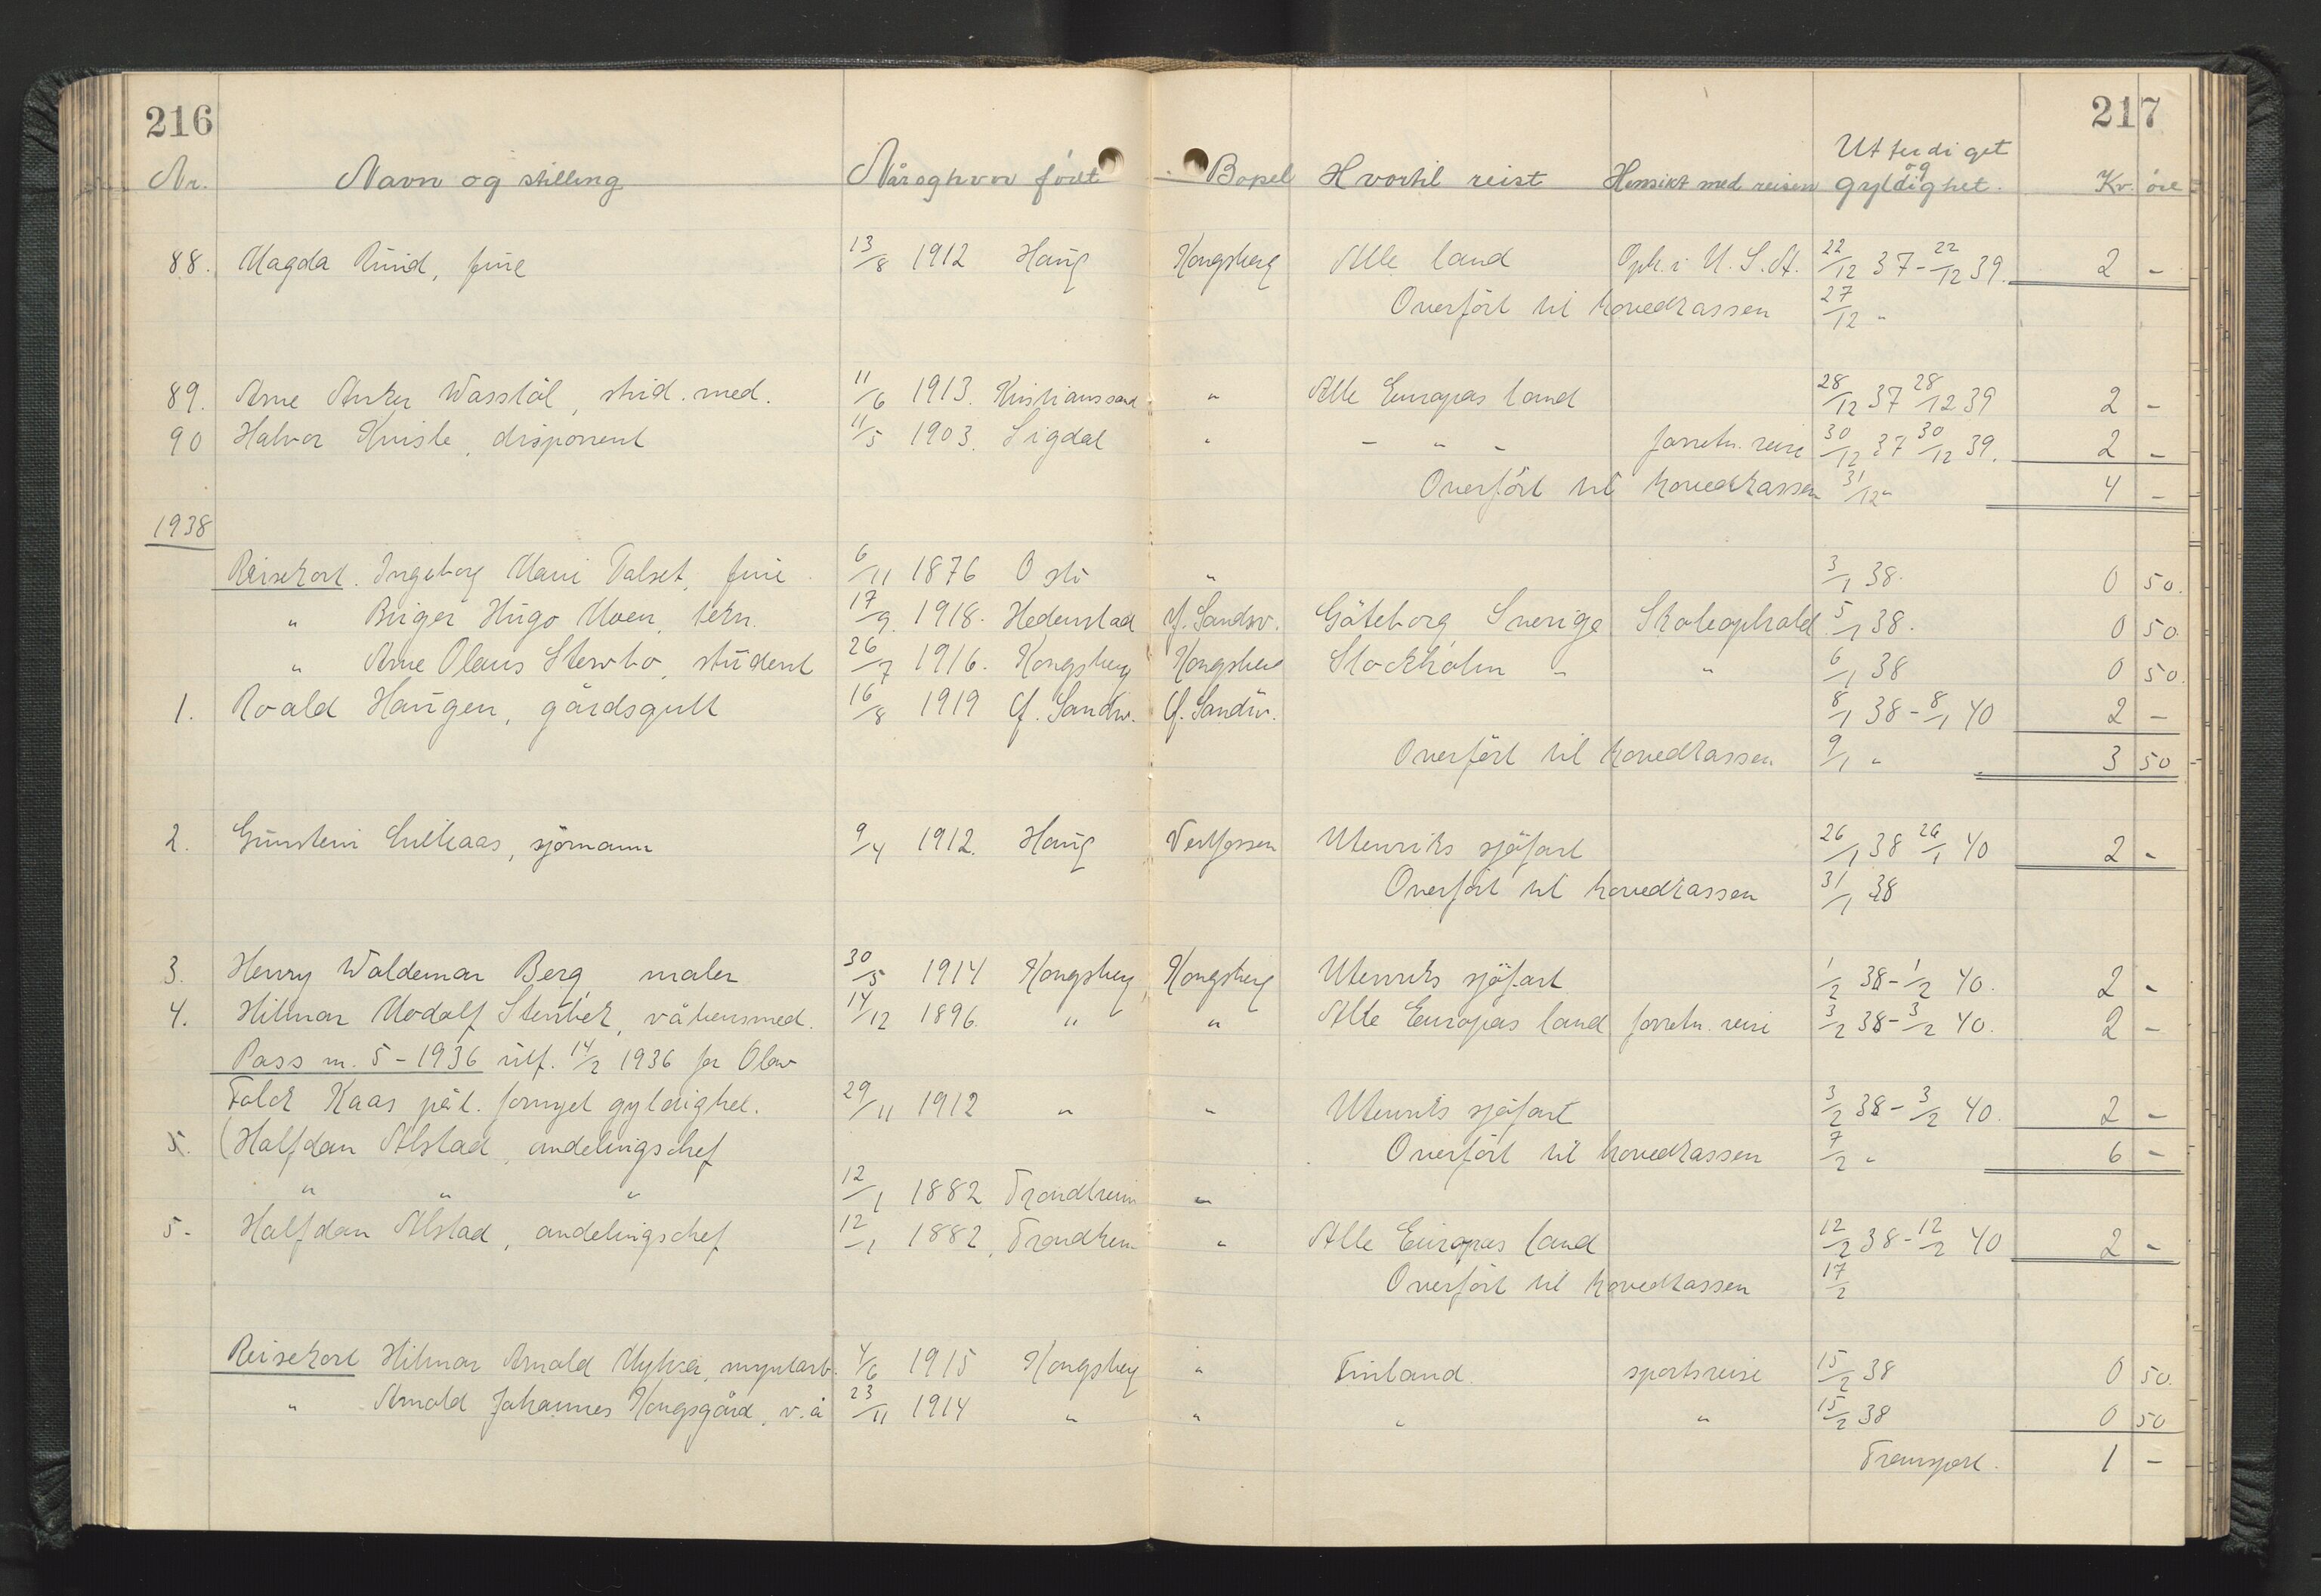 216 217
Nr. Navn og stilling Når og hvor født Bopel Hvortil reist Hensikt med reisen Utferdiget og gyldighet. Kr. øre
88. Magda Ruud, frue 13/8 1912 Haug Kongsberg Alle land Oph. i U.S.A. 22/12 37 - 22/12 39. 2 -
Overført til hovedkassen 27/12 "
89. Arne Anker Wasstøl, stud. med. 11/6 1913. Kristianssand " Alle Europas land 28/12 37 28/12 39 2 -
90 Halvor Kviste, disponent 11/5 1903. Sigdal " - " - forretn. reise 30/12 37 30/12 39. 2 -
Overført til hovedkassen 31/12 " 4 -
1938
Reisekort. Ingeborg Marie Talset, frue 6/11 1876 Oslo " 3/1 38. 0 50.
" Birger Hugo Moen, tekn. 17/9 1918. Hedenstad Y. Sandsv. Göteborg, Sverige Skoleophold 5/1 38. 0 50.
" Arne Olaus Stenbo, student 26/7 1916. Kongsberg Kongsberg Stockholm " " 6/1 38 0 50.
1. Roald Haugen, gårdsgutt 16/8 1919 Y. Sandsv. Y. Sandsv. 8/1 38 - 8/1 40 2 -
Overført til hovedkassen 9/1 " 3 50
2. Gunstein Lilleaas, sjømann 9/4 1912. Haug Vestfossen Utenriks sjöfart 26/1 38 26/1 40 2 -
Overført til hovedkassen 31/1 38
3. Henry Waldemar Berg, maler 30/5 1914 Kongsberg Kongsberg Utenriks sjöfart 1/2 38 - 1/2 40. 2 -
4. Hilmar Modolf Stenbek, våbensmed. 14/12 1896. " " Alle Europas land forretn. reise 3/2 38 - 3/2 40. 2 -
Pass nr. 5 - 1936 utf. 14/2 1936 for Olav
Falck Kaas påt. fornyet gyldighet. 29/11 1912 " " Utenriks sjöfart 3/2 38 - 3/2 40. 2 -
5. (Halfdan Alstad, avdelingschef Overført til hovedkassen 7/2 " 6 -
" " " 12/1 1882 Trondheim "
5. Halfdan Alstad, avdelingschef 12/1 1882, Trondheim " Alle Europas land 12/2 38 - 12/2 40 2 -
Overført til hovedkassen 17/2
Reisekort Hilmar Arnold Myhra, myntarb. 4/6 1915 Kongsberg " Finland. sportsreise 15/2 38 0 50.
" Arnold Johannes Kongsgård, v.a 23/11 1914 " " " " 15/2 38 0 50
Transport. 1 -